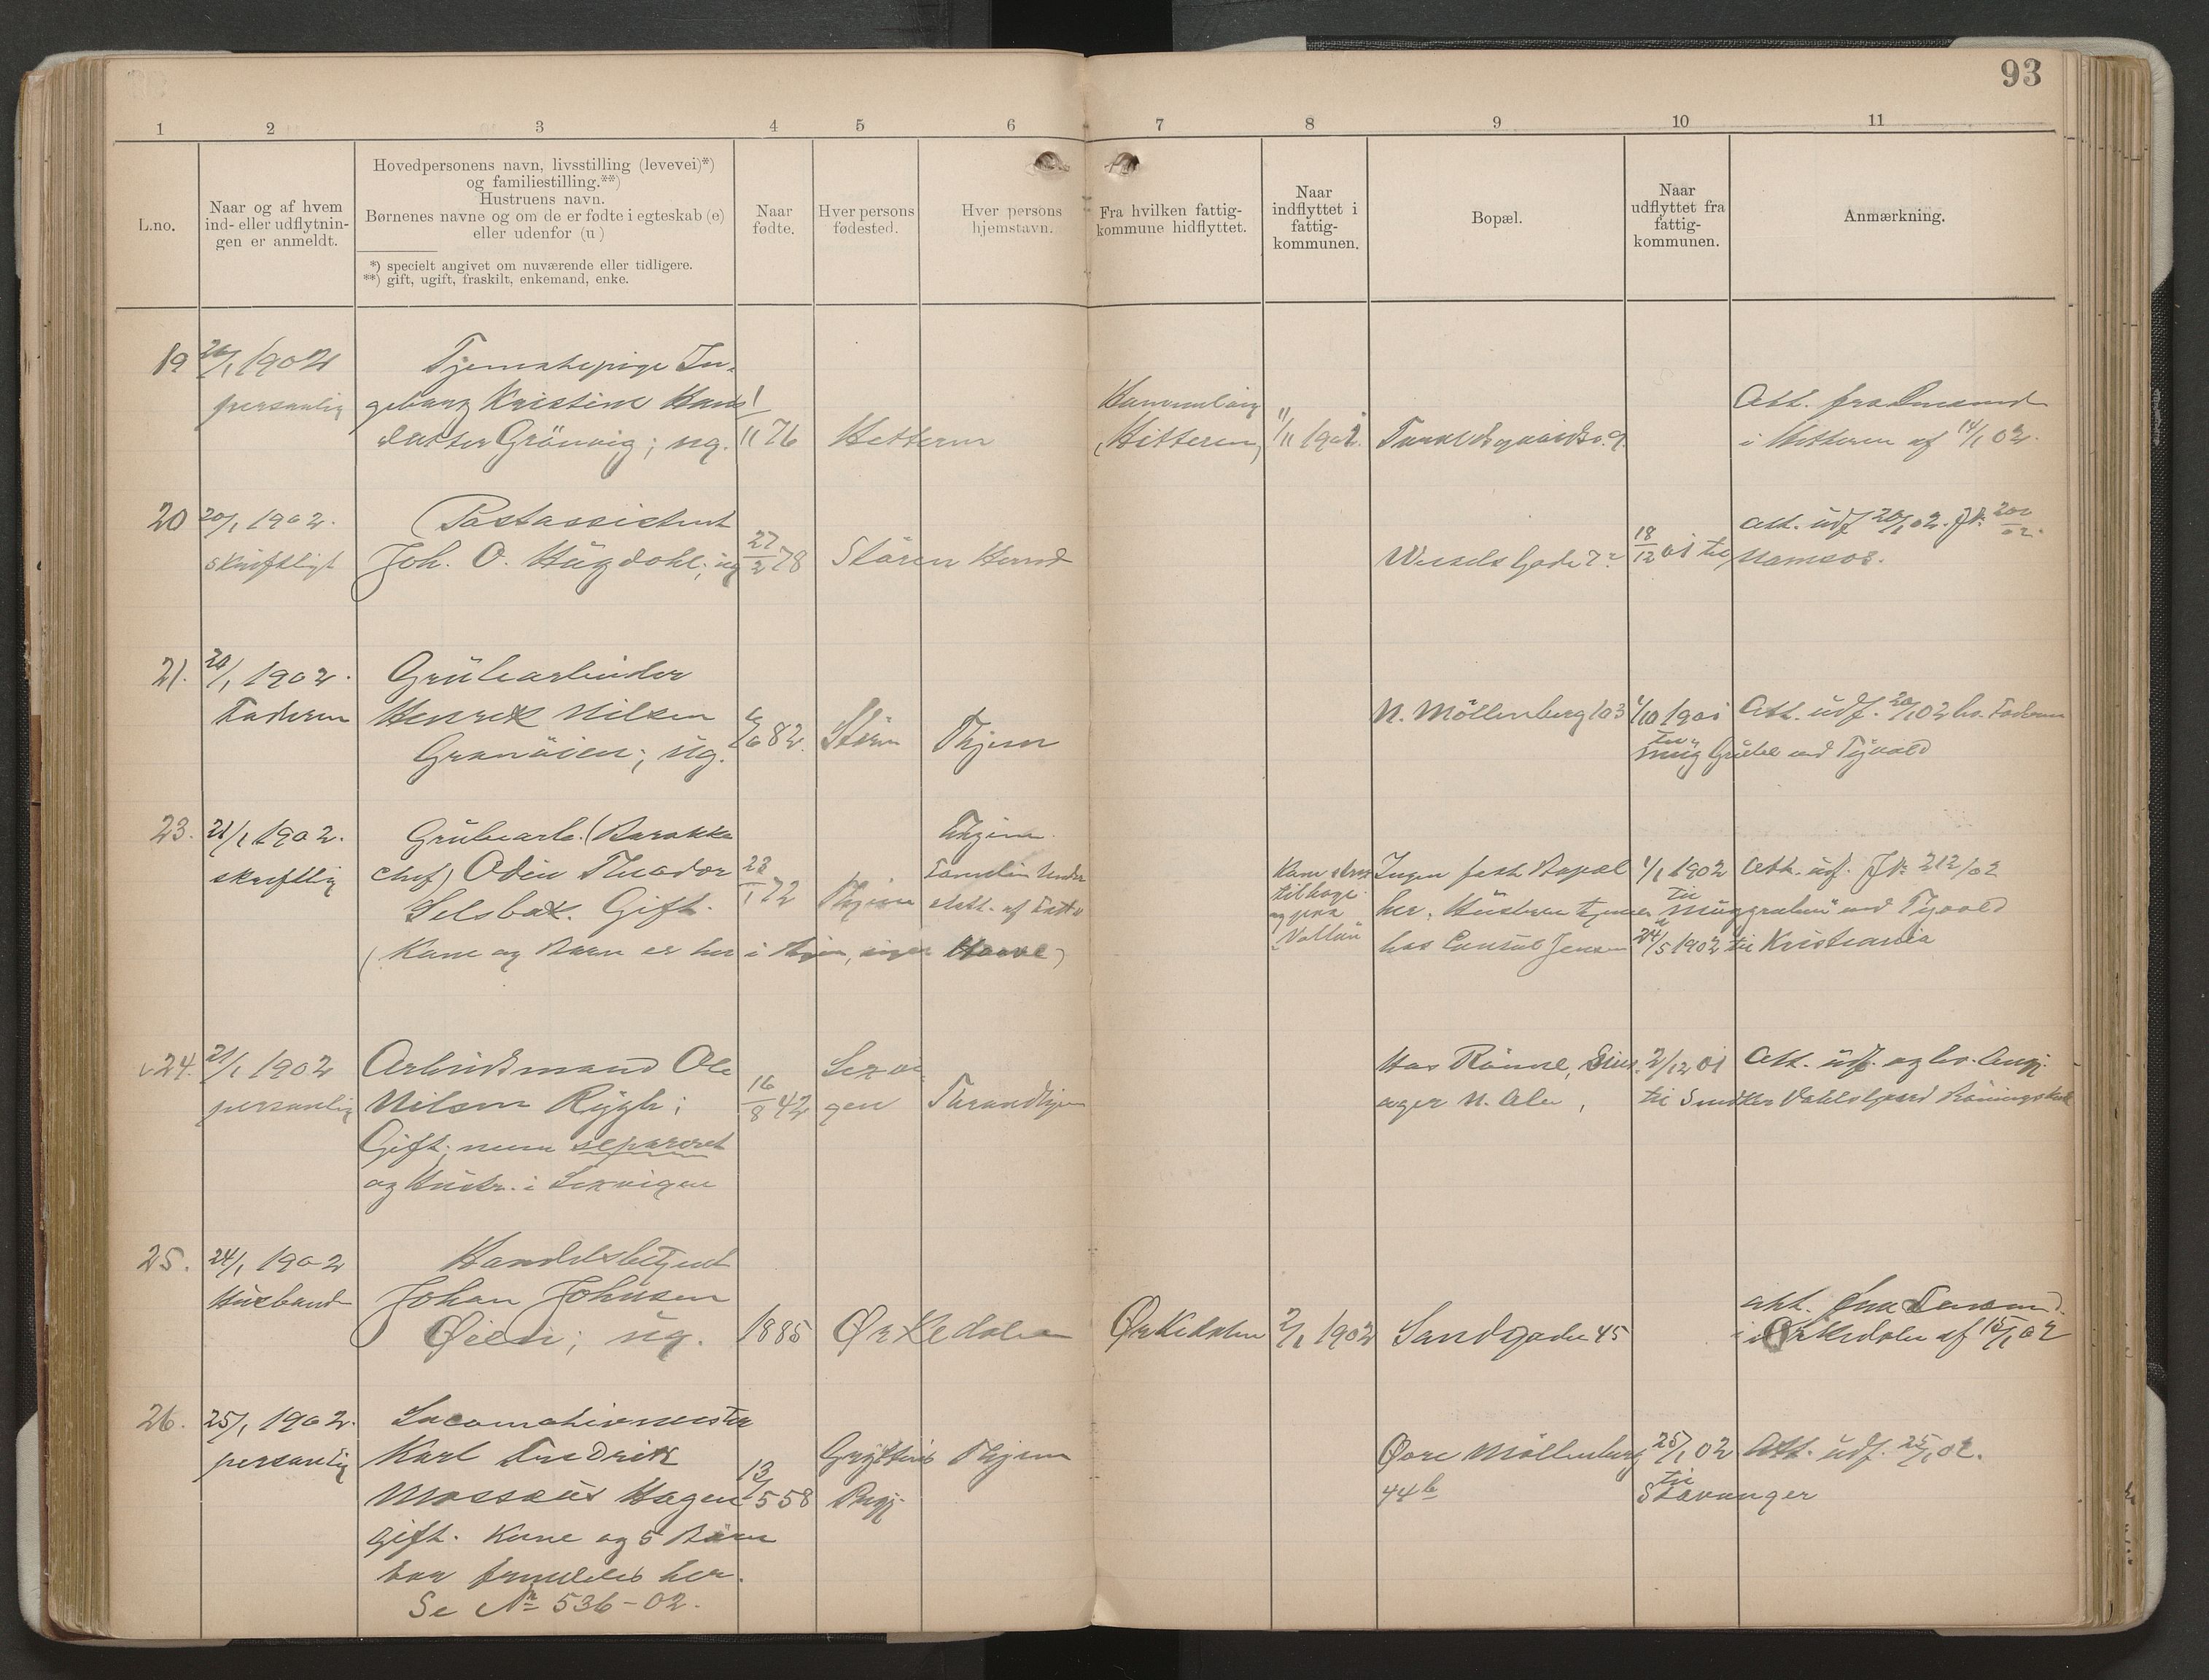 93
1 2 3 4 5 6 7 8 9 10 11
L.no.
Naar og af hvem
ind- eller udflytnin-
gen er anmeldt.
Hovedpersonens navn, livsstilling (levevei)*)
og familiestilling.**)
Hustruens navn.
Børnenes navne og om de er fødte i egteskab (e)
eller udenfor (u)
*) specielt angivet om nuværende eller tidligere.
**) gift, ugift, fraskilt, enkemand, enke.
Naar
fødte.
Hver persons
fødested.
Hver persons
hjemstavn.
Fra hvilken fattig-
kommune hidflyttet.
Naar
indflyttet i
fattig-
kommunen.
Bopæl.
Naar
udflyttet fra
fattig-
kommunen.
Anmærkning.
19
20/1 1902
personlig
Tjenestepige In-
geborg Kristine Hans-
datter Grönvig; ug.
1/11 76
Hitteren
(Hitteren)
11/11 1901.
Att. fra
i Hitteren af 14/1 02.
20
20/1 1902.
skriftligt
Postassistent
Joh. O. Hugdahl; ug
27/2 78
Stören
Wessels Gade 7
18/12 01 til
Att. udf 20/1 02. JN. 202/02.
Namsos.
21.
20/1 1902.
Faderen
Grubearbeider
Henrik Nilsen
Granöien; ug.
6/6 82.
Stören
Thjem
N. Möllenberg 103
1/10 1901
til
Mug Grube ved Tyvold
Att. udf. 20/1 02 lev. Faderen
23.
21/1 1902.
skriftlig
Grubearb. (Barakke
chef) Odin Theodor
Selsbak. Gift.
(Kone og Barn er her i Thjem, ingen
28/1 72
Thjem
Thjem
Kom strax
tilbage
og
Ingen fast Bopæl
her. Hustruen tjener
hos Consul Jensen
1/1 1902
til
Muggruben ved Tyvold
24/5 1902 til Kristiania
Att. udf. JN. 212/02
24.
21/1 1902
personlig
Arbeidsmand Ole
Nilsen Rygh;
Gift; men separeret
og Hustr. i Lexvigen
16/8 42
Lexvi-
gen
Trondhjem
Hos Rönne,
ager N. Ale,
2/12 01
Att. udf. og lev. Angj.
til
25.
24/1 1902
Husbond
Handelsbetjent
Johan Johnsen
Øien; ug.
1885
Ørkedalen
Ørkedalen
2/1 1902
Sandgaden 45
Att. fra
i Ørkedalen af 15/1 02
26.
25/1 1902.
personlig
Locomotivmester
Karl Fredrik
Hagen
gift. Kone og 5 Börn
bor fremdeles her.
Se No 536-02.
13/5 58
Thjem
Övre Möllenberg
44 b
25/1 02
til
Stavanger
Att. udf. 25/1 02.